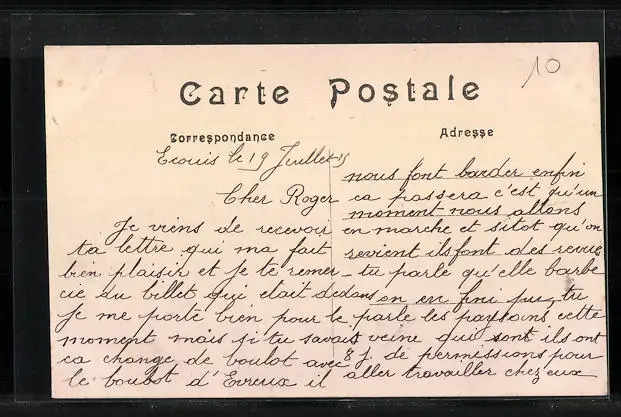 10
Carte Postale
Correspondance
Ecouis le 19 Juillet 15
Cher Roger
Je viens de recevoir
ta lettre qui ma fait
bien plaisir et je te remer
cie du billet qui etait dedans
Je me porte bien pour le
moment mais si tu savais
ca change de boulot avec
le boulot d'Evreux il
Adresse
nous font barder enfin
ca passera c'est qu'un
moment nous allons
en marche et sitot qu'on
revient ils font des revues
tu parle qu'elle barbe
on en fini pu, tu
parle les paysans cette
veine qui sont ils ont
8 j. de permissions pour
aller travailler chez eux